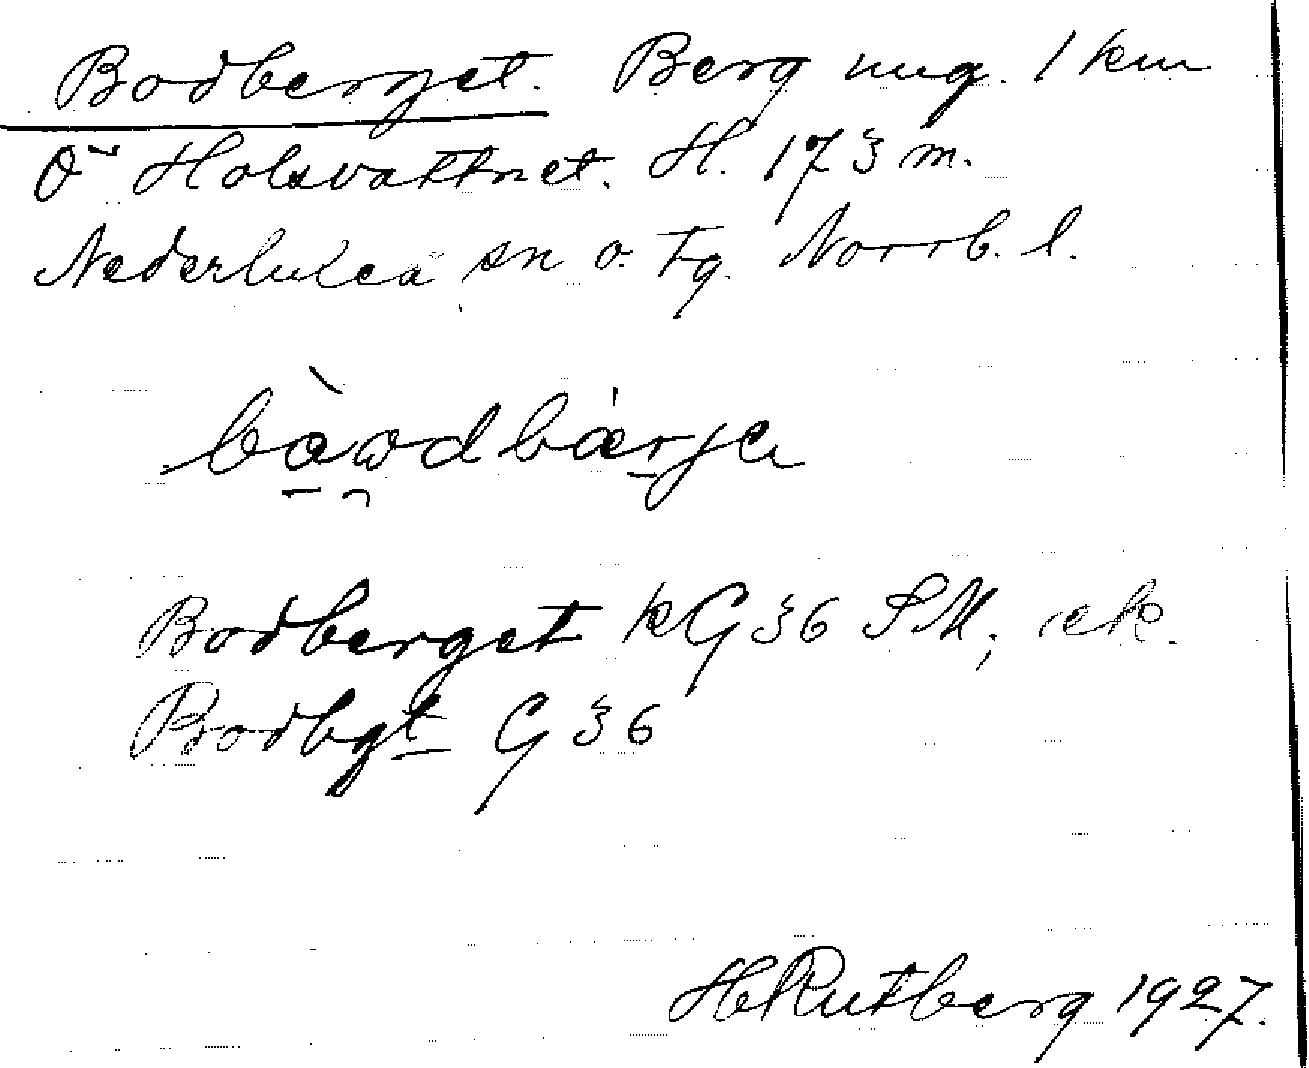 Bodberget. Berg ung. 1 km
Ö Holsvattnet. H. 173 m.
Nederluleå sn o. tg. Norrb. l.
bàwdbærje
Bodberget kG36 SM, ek.
Bodbgt G36
HRutberg 1927.